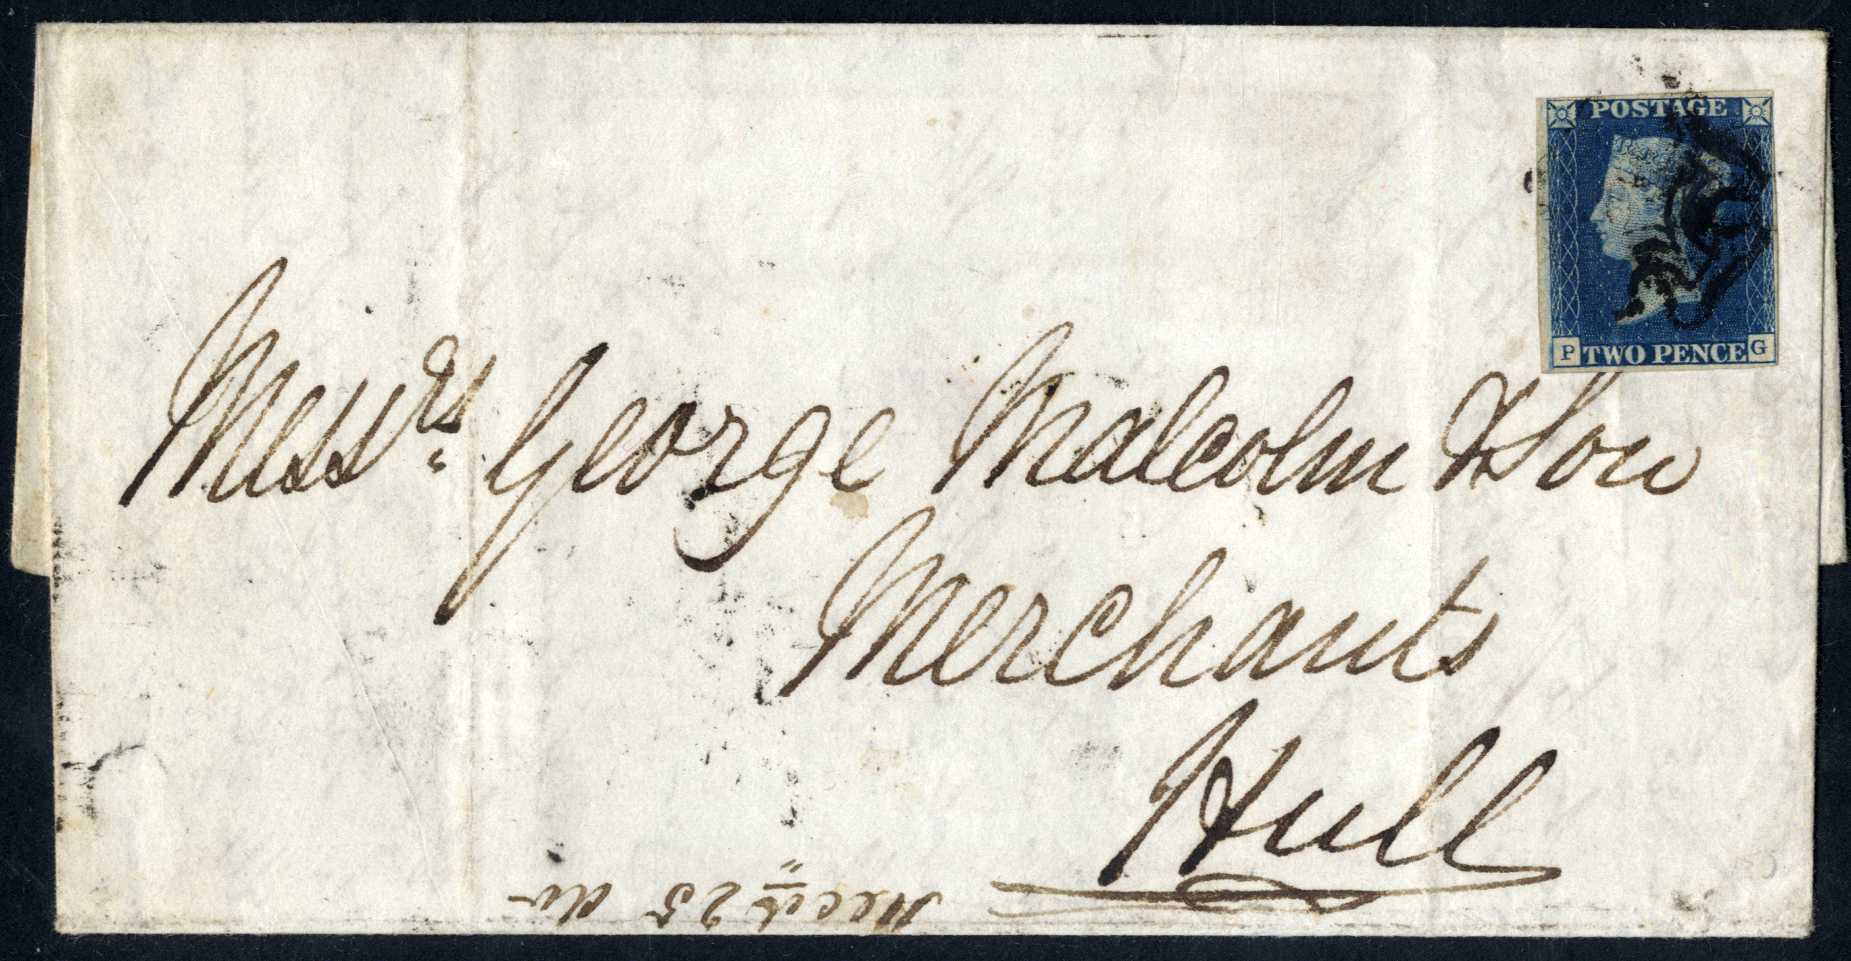 POSTAGE
P TWO PENCE G
Mess.rs George Malcolm & Son
Merchants
Hull
Recd 25 do